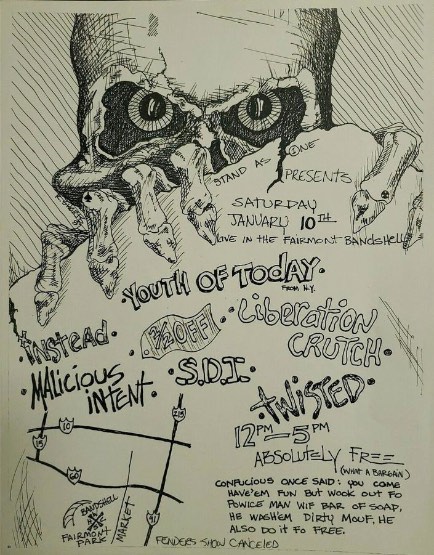 STAND AS ONE
PRESENTS
SATURDAY
JANUARY 10TH
LIVE IN THE FAIRMONT BANDSHELL
YOUTH OF TODAY
FROM N.Y.
INSTEAD
½ OFF!
LIBERATION
CRUTCH
MALICIOUS
INTENT
S.D.I.
TWISTED
12PM—5PM
ABSOLUTELY FREE
(WHAT A BARGAIN)
CONFUCIOUS ONCE SAID: YOU COME
HAVE'EM FUN BUT WOOK OUT FO
POWICE MAN WIF BAR OF SOAP,
HE WASH'EM DIRTY MOUF, HE
ALSO DO IT FO FREE.
10
15
60
91
BANDSHELL
FAIRMONT
PARK
MARKET
FENDERS SHOW CANCELED